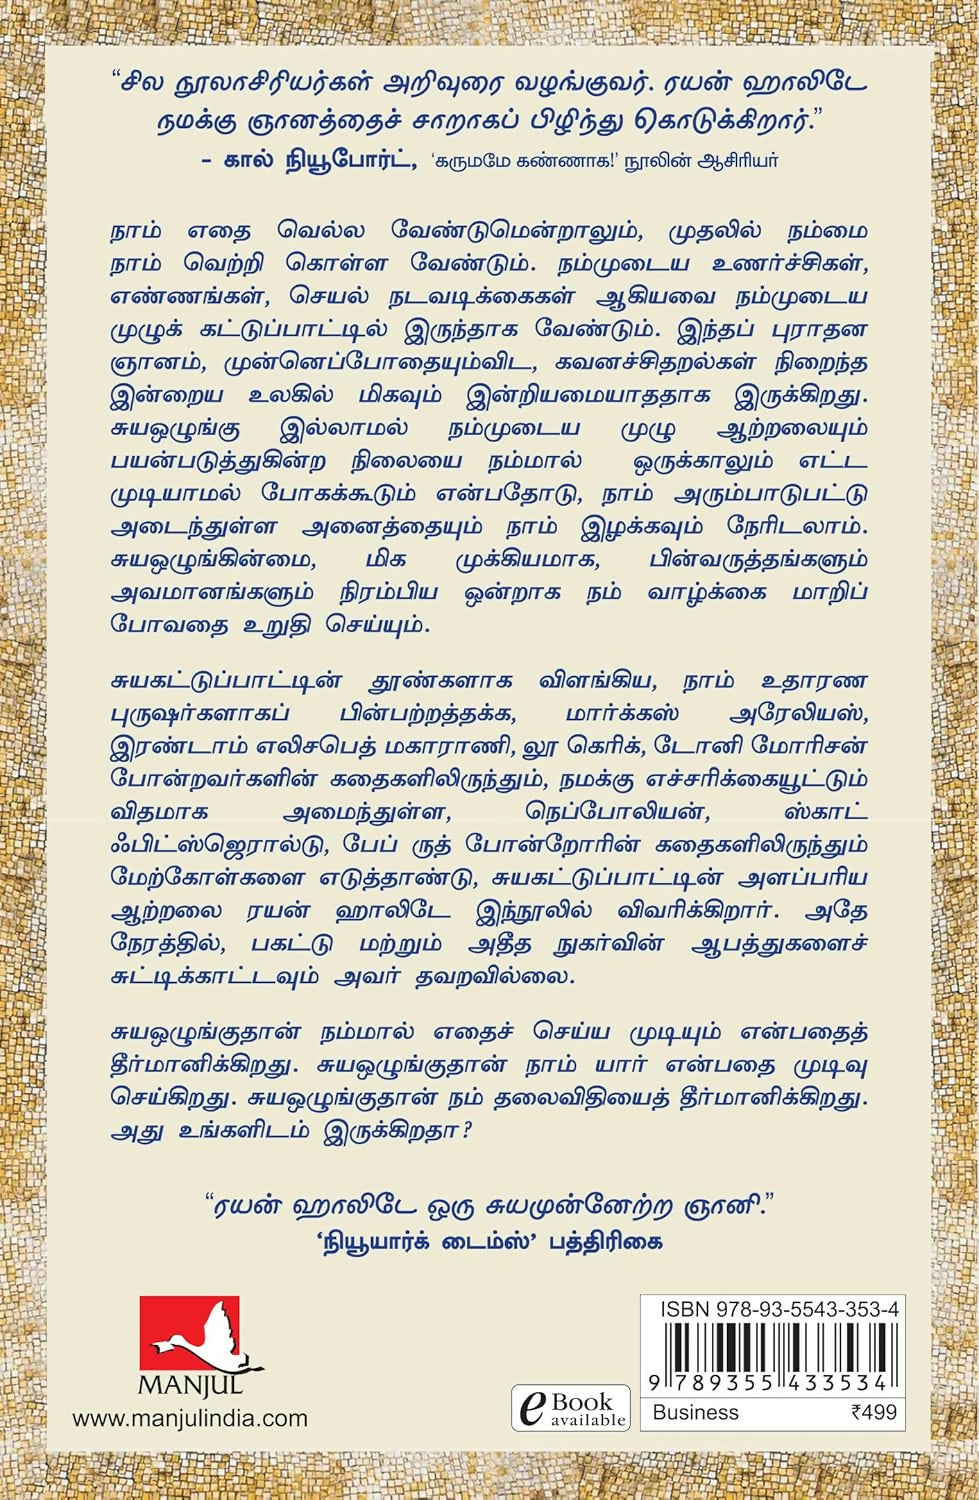 “சில நூலாசிரியர்கள் அறிவுரை வழங்குவர். ரயன் ஹாலிடே
நமக்கு ஞானத்தைச் சாறாகப் பிழிந்து கொடுக்கிறார்.”
– கால் நியூபோர்ட், ‘கருமமே கண்ணாக!’ நூலின் ஆசிரியர்
நாம் எதை வெல்ல வேண்டுமென்றாலும், முதலில் நம்மை
நாம் வெற்றி கொள்ள வேண்டும். நம்முடைய உணர்ச்சிகள்,
எண்ணங்கள், செயல் நடவடிக்கைகள் ஆகியவை நம்முடைய
முழுக் கட்டுப்பாட்டில் இருந்தாக வேண்டும். இந்தப் புராதன
ஞானம், முன்னெப்போதையும்விட, கவனச்சிதறல்கள் நிறைந்த
இன்றைய உலகில் மிகவும் இன்றியமையாததாக இருக்கிறது.
சுயஒழுங்கு இல்லாமல் நம்முடைய முழு ஆற்றலையும்
பயன்படுத்துகின்ற நிலையை நம்மால் ஒருக்காலும் எட்ட
முடியாமல் போகக்கூடும் என்பதோடு, நாம் அரும்பாடுபட்டு
அடைந்துள்ள அனைத்தையும் நாம் இழக்கவும் நேரிடலாம்.
சுயஒழுங்கின்மை, மிக முக்கியமாக, பின்வருத்தங்களும்
அவமானங்களும் நிரம்பிய ஒன்றாக நம் வாழ்க்கை மாறிப்
போவதை உறுதி செய்யும்.
சுயகட்டுப்பாட்டின் தூண்களாக விளங்கிய, நாம் உதாரண
புருஷர்களாகப் பின்பற்றத்தக்க, மார்க்கஸ் அரேலியஸ்,
இரண்டாம் எலிசபெத் மகாராணி, லூ கெரிக், டோனி மோரிசன்
போன்றவர்களின் கதைகளிலிருந்தும், நமக்கு எச்சரிக்கையூட்டும்
விதமாக அமைந்துள்ள, நெப்போலியன், ஸ்காட்
ஃபிட்ஸ்ஜெரால்டு, பேப் ருத் போன்றோரின் கதைகளிலிருந்தும்
மேற்கோள்களை எடுத்தாண்டு, சுயகட்டுப்பாட்டின் அளப்பரிய
ஆற்றலை ரயன் ஹாலிடே இந்நூலில் விவரிக்கிறார். அதே
நேரத்தில், பகட்டு மற்றும் அதீத நுகர்வின் ஆபத்துகளைச்
சுட்டிக்காட்டவும் அவர் தவறவில்லை.
சுயஒழுங்குதான் நம்மால் எதைச் செய்ய முடியும் என்பதைத்
தீர்மானிக்கிறது. சுயஒழுங்குதான் நாம் யார் என்பதை முடிவு
செய்கிறது. சுயஒழுங்குதான் நம் தலைவிதியைத் தீர்மானிக்கிறது.
அது உங்களிடம் இருக்கிறதா?
“ரயன் ஹாலிடே ஒரு சுயமுன்னேற்ற ஞானி.”
‘நியூயார்க் டைம்ஸ்’ பத்திரிகை
MANJUL
www.manjulindia.com
eBook
available
ISBN 978-93-5543-353-4
9 789355 433534
Business ₹499